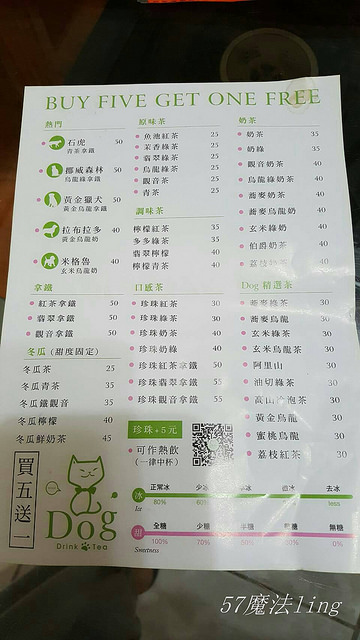 BUY FIVE GET ONE FREE
熱門
石虎 50
青茶拿鐵
挪威森林 50
烏龍綠拿鐵
黃金獵犬 50
黃金烏龍拿鐵
拉布拉多 40
黃金烏龍奶
米格魯 40
玄米烏龍奶
拿鐵
紅茶拿鐵 50
翡翠拿鐵 50
觀音拿鐵 50
冬瓜 (甜度固定)
冬瓜茶 25
冬瓜青茶 35
冬瓜鐵觀音 35
冬瓜檸檬 40
冬瓜鮮奶茶 45
原味茶
魚池紅茶 25
茉香綠茶 25
翡翠綠茶 25
烏龍綠茶 25
觀音茶 25
青茶 25
調味茶
檸檬紅茶 35
多多綠茶 35
翡翠檸檬 40
檸檬青茶 40
口感茶
珍珠紅茶 30
珍珠綠茶 30
珍珠奶茶 40
珍珠奶綠 40
珍珠紅茶拿鐵 55
珍珠翡翠拿鐵 55
珍珠觀音拿鐵 55
珍珠+5元
可作熱飲
(一律中杯)
奶茶
奶茶 35
奶綠 35
觀音奶茶 40
烏龍綠奶茶 40
蕎麥奶茶 40
蕎麥烏龍奶 40
玄米綠奶 40
伯爵奶茶 40
荔枝奶茶
Dog 精選茶
蕎麥綠茶 30
蕎麥烏龍 30
玄米綠茶 30
玄米烏龍茶 30
阿里山 30
油切綠茶 30
高山冷泡茶 30
黃金烏龍 30
蜜桃烏龍 30
荔枝紅茶 30
買五送一
Dog
Drink Tea
正常冰 少冰 去冰
冰 80% less
Ice
全糖 少糖 半糖 無糖
甜 100% 70% 0%
Sweetness
57魔法ling